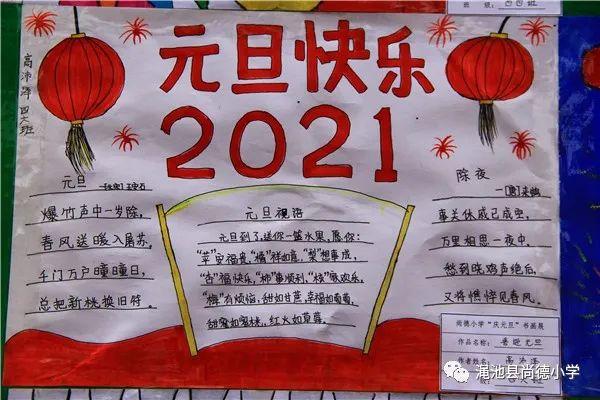 元旦快乐
2021
元旦
王安石
爆竹声中一岁除，
春风送暖入屠苏，
千门万户曈曈日，
总把新桃换旧符。
元旦祝语
元旦到了，送你一篮水果，愿你：
安福贵，“橘”祥如意，“梨”想事成，
福快乐，“柿”事顺利，“枝”歌欢乐，
“梅”有烦恼，甜如甘蔗，幸福如葡萄，
甜蜜如蜜桃，红火如草莓。
除夜
—[唐]来鹄
事关休戚已成空，
万里相思一夜中，
愁到晓鸡声绝后，
又将憔悴见春风。
尚德小学“庆元旦”书画展
作品名称：喜迎元旦
作者姓名：
渑池县尚德小学